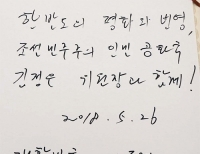 한반도의 평화와 번영,
조선민주주의 인민 공화국
김정은 위원장과 함께!
2018. 5. 26
대한민국